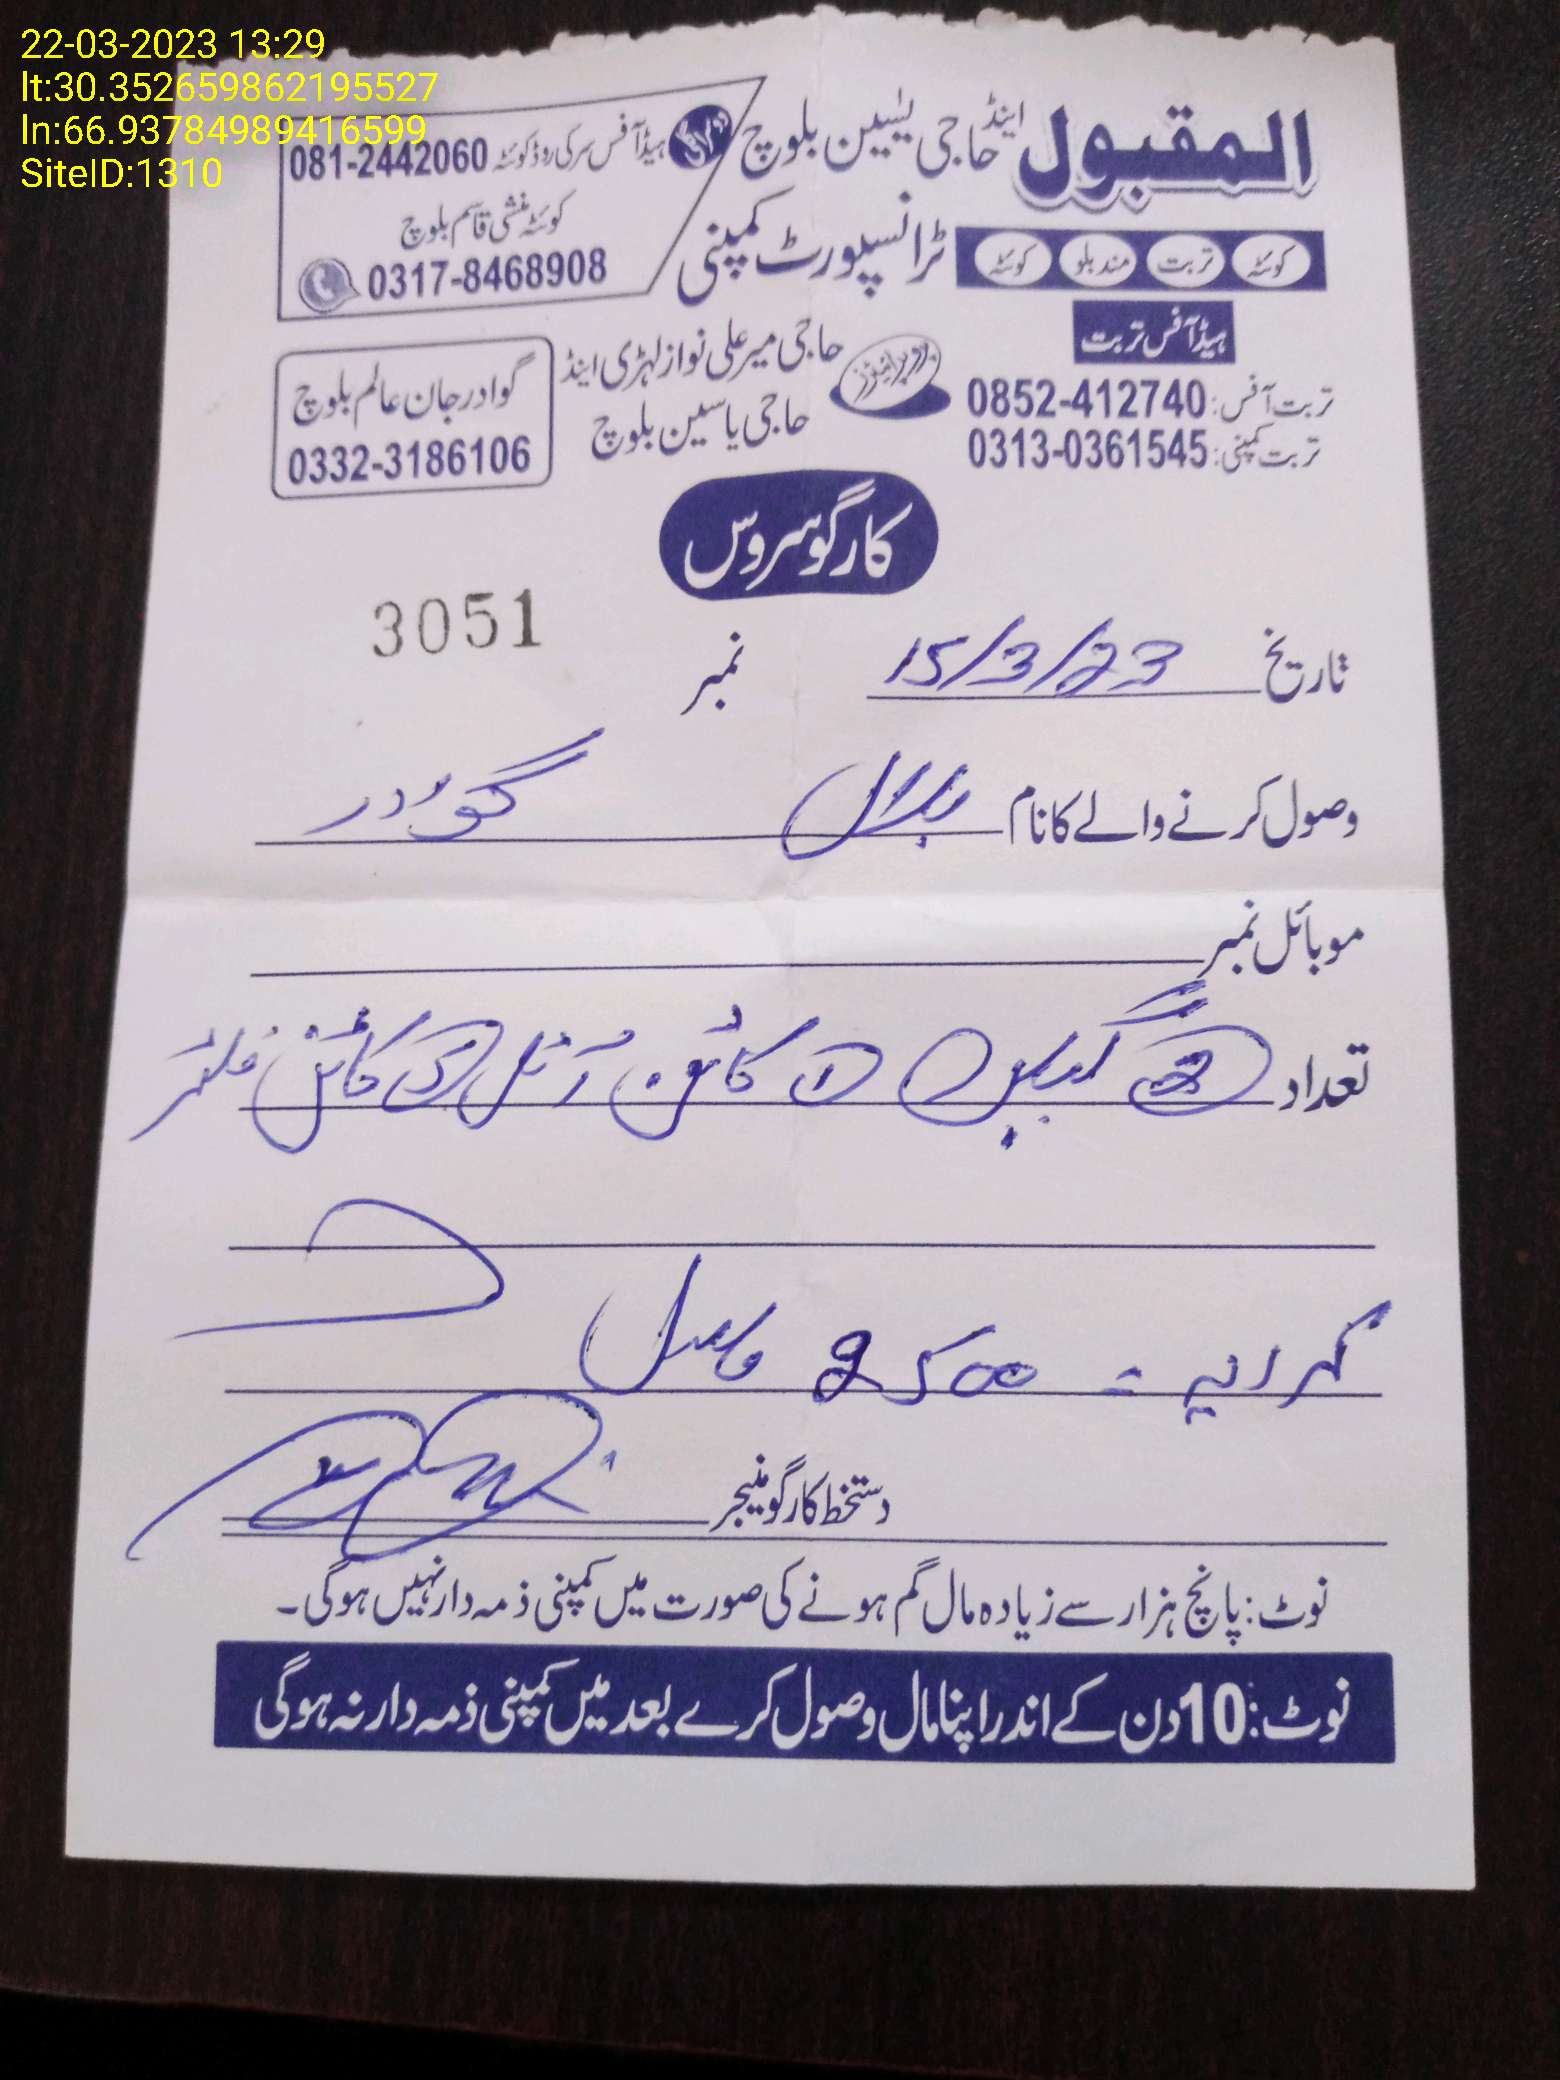 22-03-2023 13:29
lt:30.352659862195527
ln:66.93784989416599
SiteID:1310
المقبول اینڈ حاجی یٰسین بلوچ
ٹرانسپورٹ کمپنی
کوئٹہ تربت مند بلو کوئٹہ
ہیڈ آفس سرکی روڈ کوئٹہ 081-2442060
کوئٹہ منشی قاسم بلوچ
0317-8468908
ہیڈ آفس تربت
تربت آفس: 0852-412740
تربت کمپنی: 0313-0361545
پروپرائیٹرز
حاجی میر علی نواز لہڑی اینڈ
حاجی یاسین بلوچ
گوادر جان عالم بلوچ
0332-3186106
کارگو سروس
تاریخ 15/3/23 نمبر 3051
وصول کرنے والے کا نام بلال گوادر
موبائل نمبر
تعداد ② 1 کاٹن آئل 3 کاٹن فلٹر
کرایہ = 2500
دستخط کارگو منیجر
نوٹ: پانچ ہزار سے زیادہ مال گم ہونے کی صورت میں کمپنی ذمہ دار نہیں ہوگی۔
نوٹ: 10 دن کے اندر اپنا مال وصول کرے بعد میں کمپنی ذمہ دار نہ ہوگی